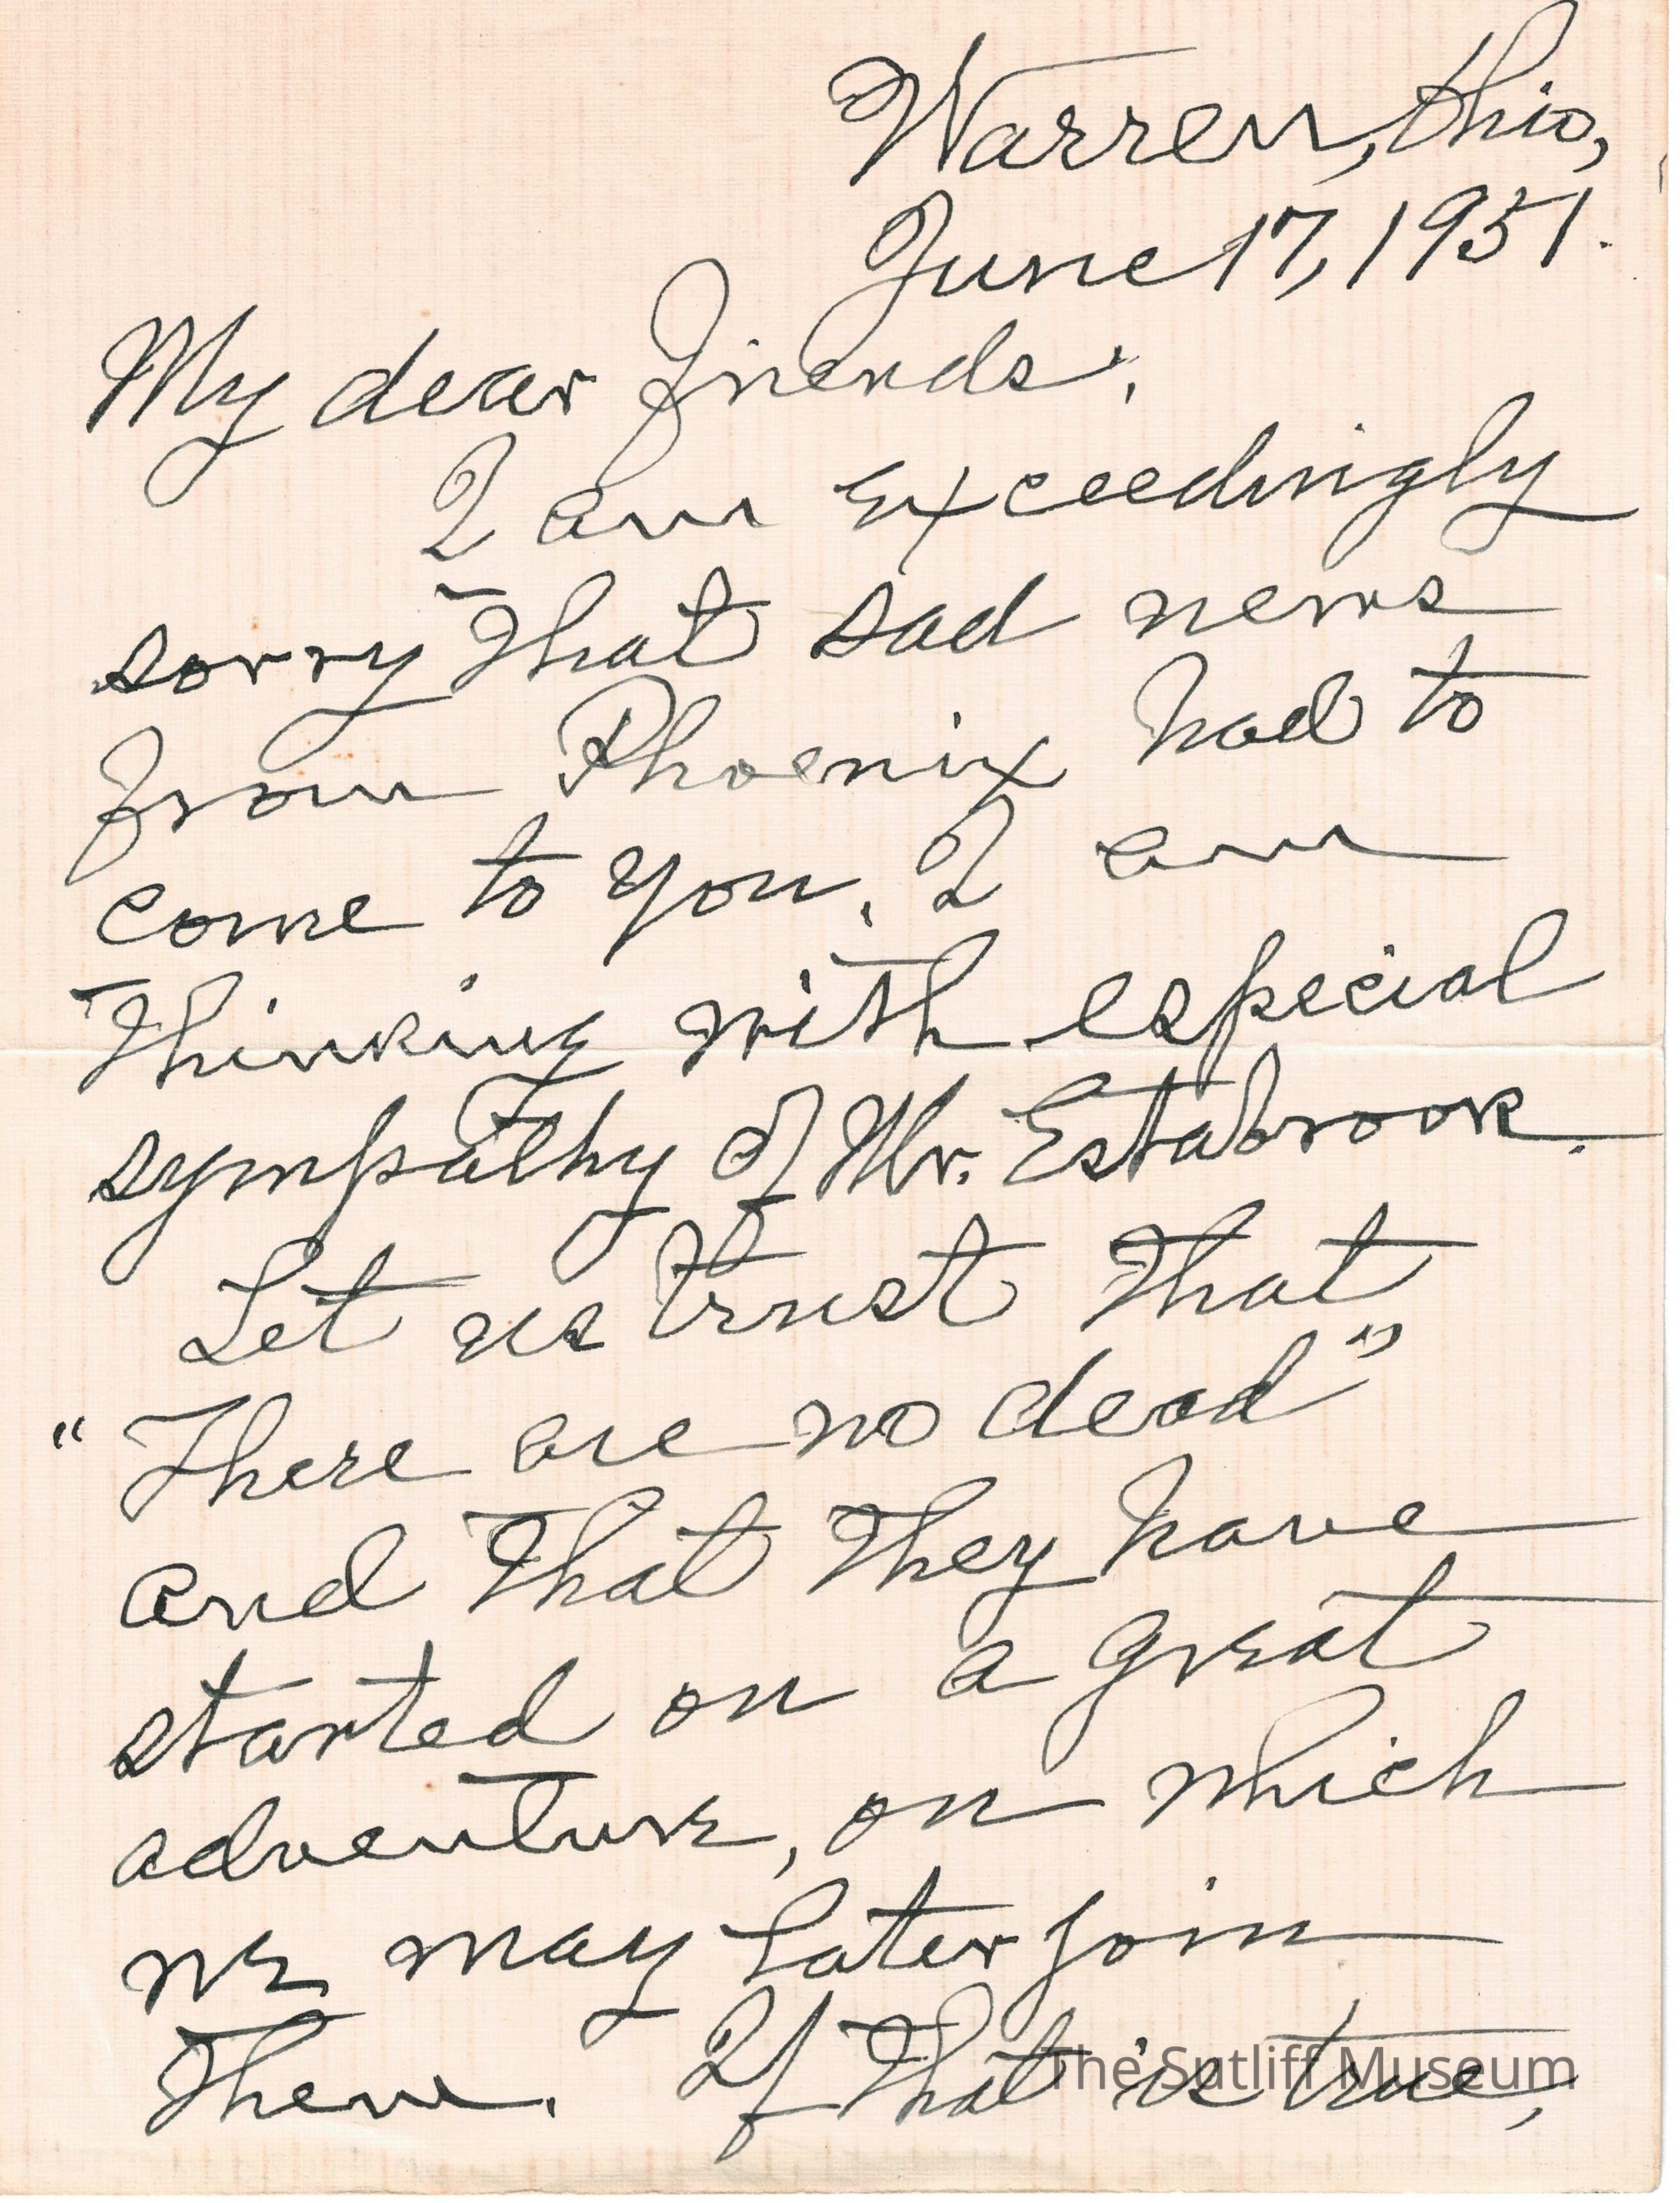 Warren, Ohio,
June 17, 1951.
My dear Friends:
I am exceedingly
sorry that sad news
from Phoenix had to
come to you. I am
thinking with especial
sympathy of Mr. Estabrook.
Let us trust that
"There are no dead"
and that they have
started on a great
adventure, on which
we may later join
them. If that is true,
The Sutliff Museum